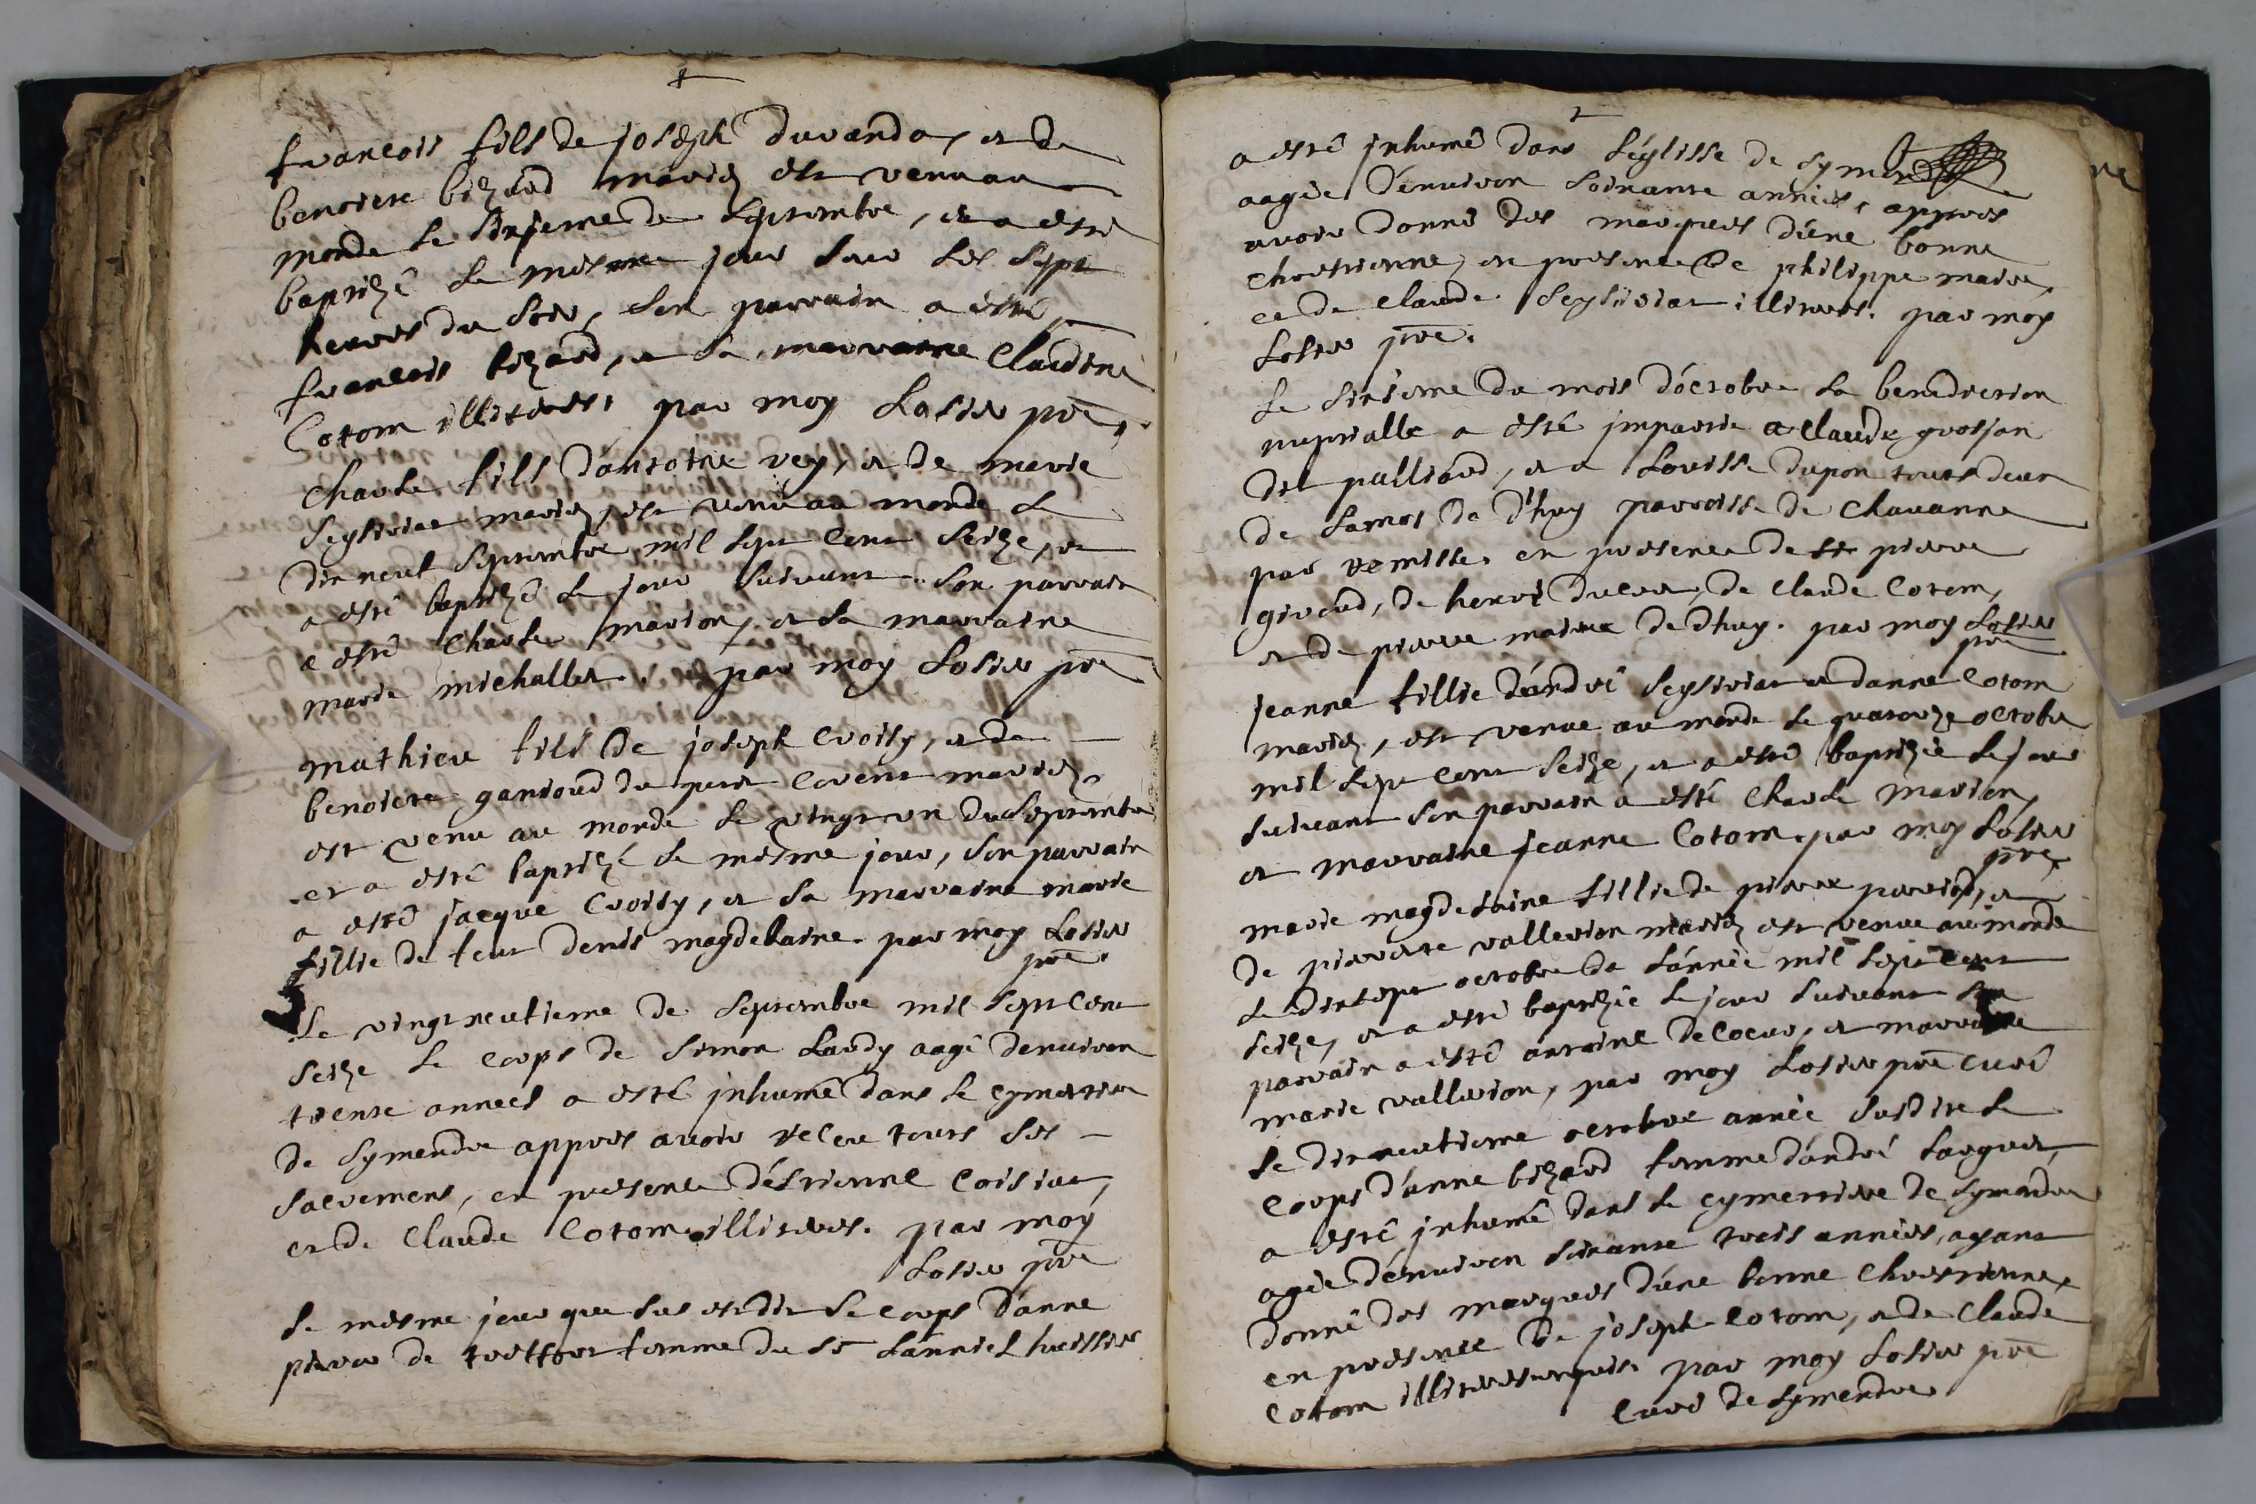 francois fils de joseph durande, et de
benoiste bizard mariez est venu au
monde le sixjeme de septembre, et a esté
baptizé le mesme jour sur les sept
heures du soir, son parrain a esté
francois bizard, et sa marraine Claudine
Cotom illiteres, par moy Losier pre,
Charle fils d'antoine rey, et de marie
Seyssiriat mariez, est venu au monde le
dixneuf septembre mil sept cent seize, et
a esté baptizé le jour suivant son parrain
a esté Charle marion, et sa marraine
marie michallet. par moy Losier pre
mathieu fils de joseph croisy, et de
benoiste gandoud du petit Covent mariez,
est venu au monde le vingt un du septembre
et a esté baptizé le mesme jour, son parrain
a esté jacque Croisy, et sa marraine marie
fillie de feu denis magdelaine. par moy Losier
pre.
Le vingt neufieme de septembre mil sept cent
seize le corps de simon Landy aagé denuiron
trente annees a esté jnhumé dans le cymetiere
de symendre appres auoir receu touts ses
sacremens, en presence d'éstienne Coisiat,
et de Claude Cotom illiteres. par moy
Losier pre
Le mesme jour que sus est dit le corps d'anne
pierre de femme du sr Lanniel huissier
a esté jnhumé dans l'église de
aagée d'énuiron soixante années, appres
avoir donné des marques d'úne bonne
chrestienne, en presence de philippe maire,
et de Claude Seyssiriat illiteres. par moy
Losier pre.
Le sixieme du mois d'óctobre la benediction
nuptialle a esté jmpartie a Claude grosjan
dit palliard, et a Louisse dupon touts deux
de Lamos de d'huy parroisse de Chauanne
par remisse. en presence de pierre
giroud, de de Claude Cotom,
et de pierre maire de dhuy. par moy Losier
pre
jeanne fillie d'ándré Seyssiriat et danne Cotom
mariez, est venue au monde le quatorze octobre
mil sept cent seize, et a esté baptizée le jour
suiuant son parrain a esté Charle marion,
et marraine jeanne Cotom. par moy Losier
pre
marie magdelaine fillie de pierre et
de pierrette vallerion mariez est venue au monde
le dixsept octobre de l'ánnée mil sept cent
seize, et a esté baptizée le jour suivant son
parrain a esté antoine delocur, et marraine
marie vallerion, par moy Losier pre curé
Le dixneufieme octobre année susdite le
Corps d'anne bizard femme d'ándré
a esté jnhumé dans le cymettiere de symandre
agée d'énuiron soixante trois années, ayant
donné des marques d'úne bonne Chrestienne,
en presence de joseph Cotom, et de Claude
Cotom illiteres requis. par moy Losier pre
Curé de symendre